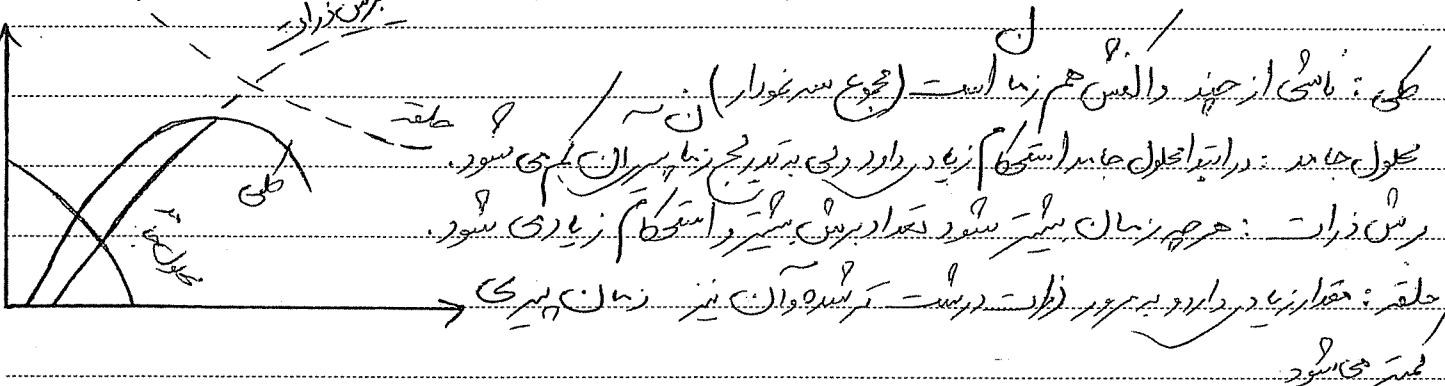 برش ذرات
حلقه
کلی
محلول جامد
کلی : ناشی از چند واکنش هم زمان است (مجموع سه نمودار)
محلول جامد : در ابتدا محلول جامد استحکام زیادی دارد ولی به تدریج زمان پیرسازی کم می شود.
برش ذرات : هر چه زمان بیشتر شود تعداد برش بیشتر و استحکام زیادی شود.
حلقه : مقدار زیادی دارد و به مرور ذرات درشت تر شده و آن نیز زمان پیری
کمتر می شود